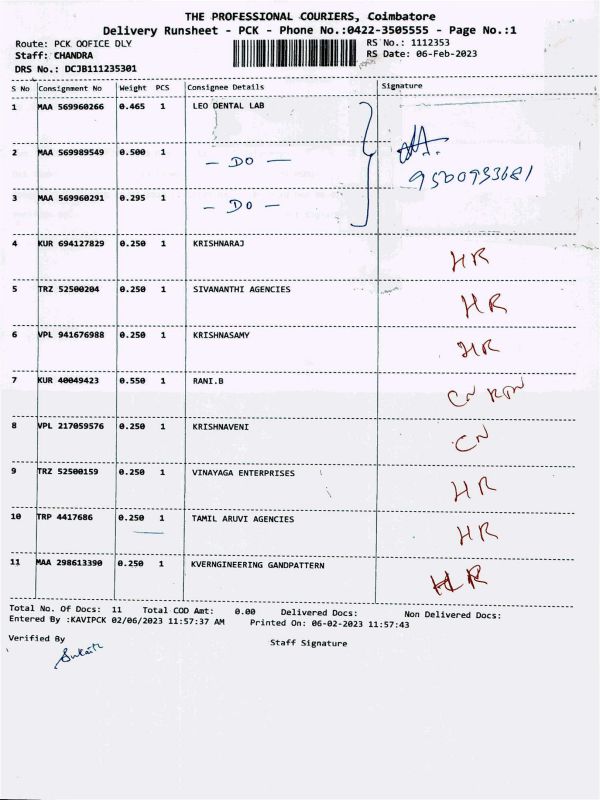 THE PROFESSIONAL COURIERS, Coimbatore
Delivery Runsheet - PCK - Phone No.:0422-3505555 - Page No.:1
Route: PCK OOFICE DLY RS No.: 1112353
Staff: CHANDRA RS Date: 06-Feb-2023
DRS No.: DCJB111235301
S No Consignment No Weight PCS Consignee Details Signature
1 MAA 569960266 0.465 1 LEO DENTAL LAB
2 MAA 569989549 0.500 1 — DO —
9500933681
3 MAA 569960291 0.295 1 — DO —
4 KUR 694127829 0.250 1 KRISHNARAJ HR
5 TRZ 52500204 0.250 1 SIVANANTHI AGENCIES HR
6 VPL 941676988 0.250 1 KRISHNASAMY HR
7 KUR 40049423 0.550 1 RANI.B CN RTN
8 VPL 217059576 0.250 1 KRISHNAVENI CN
9 TRZ 52500159 0.250 1 VINAYAGA ENTERPRISES HR
10 TRP 4417686 0.250 1 TAMIL ARUVI AGENCIES HR
11 MAA 298613390 0.250 1 KVERNGINEERING GANDPATTERN HR
Total No. Of Docs: 11 Total COD Amt: 0.00 Delivered Docs: Non Delivered Docs:
Entered By :KAVIPCK 02/06/2023 11:57:37 AM Printed On: 06-02-2023 11:57:43
Verified By Staff Signature